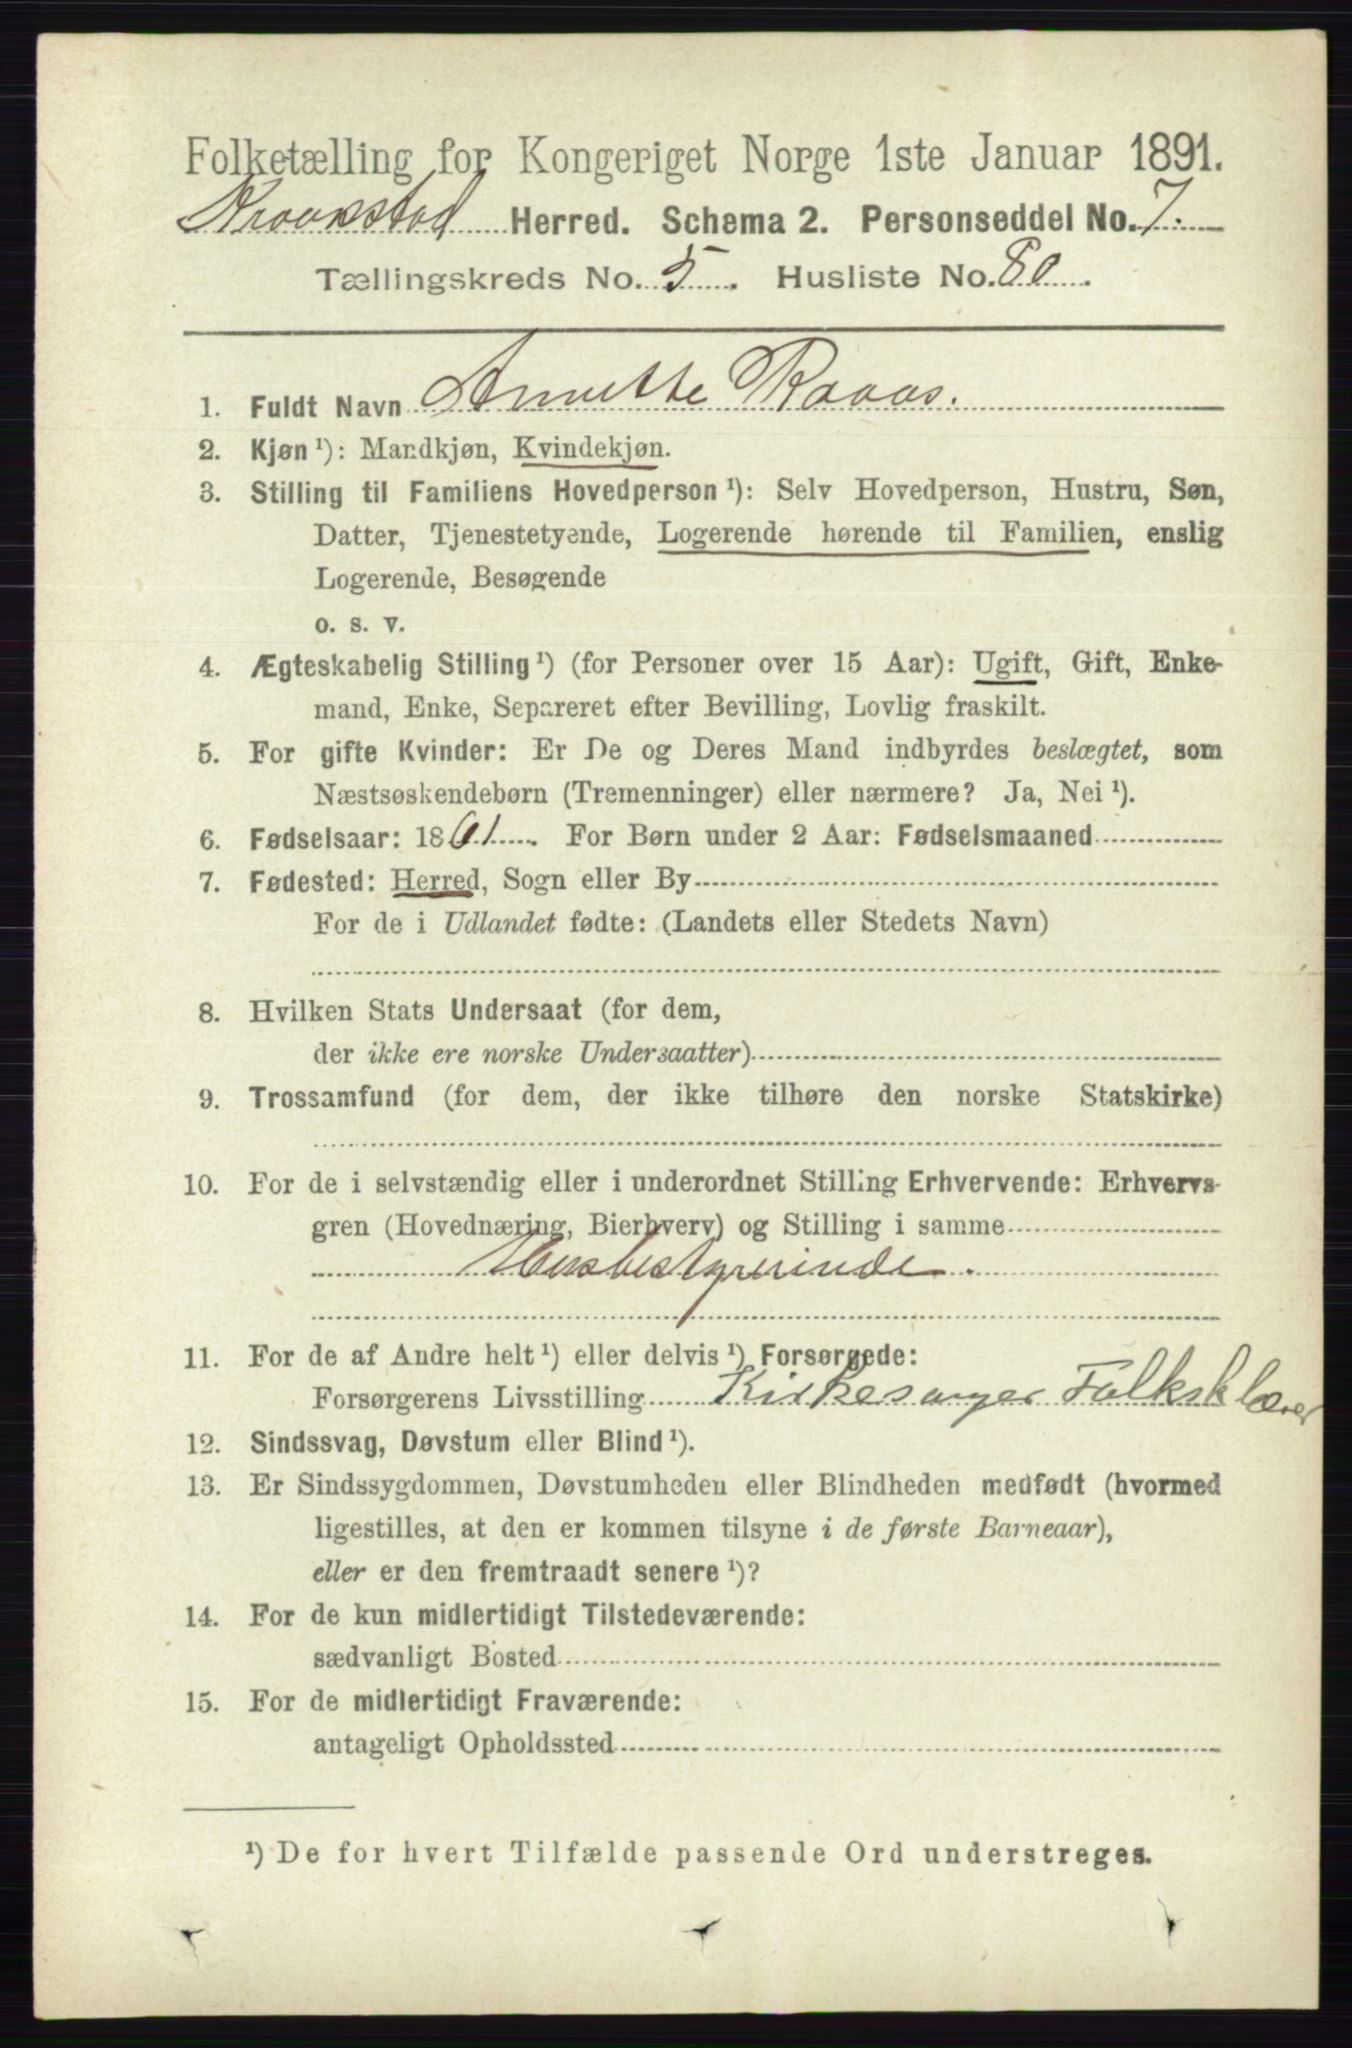 Folketælling for Kongeriget Norge 1ste Januar 1891.
Kraakstad Herred. Schema 2. Personseddel No. 7.
Tællingskreds No. 5. Husliste No. 80.
1. Fuldt Navn Annette Raaas.
2. Kjøn ¹): Mandkjøn, Kvindekjøn.
3. Stilling til Familiens Hovedperson ¹): Selv Hovedperson, Hustru, Søn,
Datter, Tjenestetyende, Logerende hørende til Familien, enslig
Logerende, Besøgende
o. s. v.
4. Ægteskabelig Stilling ¹) (for Personer over 15 Aar): Ugift, Gift, Enke-
mand, Enke, Separeret efter Bevilling, Lovlig fraskilt.
5. For gifte Kvinder: Er De og Deres Mand indbyrdes beslægtet, som
Næstsøskendebørn (Tremenninger) eller nærmere? Ja, Nei ¹).
6. Fødselsaar: 1861. For Børn under 2 Aar: Fødselsmaaned
7. Fødested: Herred, Sogn eller By
For de i Udlandet fødte: (Landets eller Stedets Navn)
8. Hvilken Stats Undersaat (for dem,
der ikke ere norske Undersaatter)
9. Trossamfund (for dem, der ikke tilhøre den norske Statskirke)
10. For de i selvstændig eller i underordnet Stilling Erhvervende: Erhvervs-
gren (Hovednæring, Bierhverv) og Stilling i samme
Husbestyrerinde.
11. For de af Andre helt ¹) eller delvis ¹) Forsørgede:
Forsørgerens Livsstilling Kirkesanger Folkeskolelærer
12. Sindssvag, Døvstum eller Blind ¹).
13. Er Sindssygdommen, Døvstumheden eller Blindheden medfødt (hvormed
ligestilles, at den er kommen tilsyne i de første Barneaar),
eller er den fremtraadt senere ¹)?
14. For de kun midlertidigt Tilstedeværende:
sædvanligt Bosted
15. For de midlertidigt Fraværende:
antageligt Opholdssted
¹) De for hvert Tilfælde passende Ord understreges.